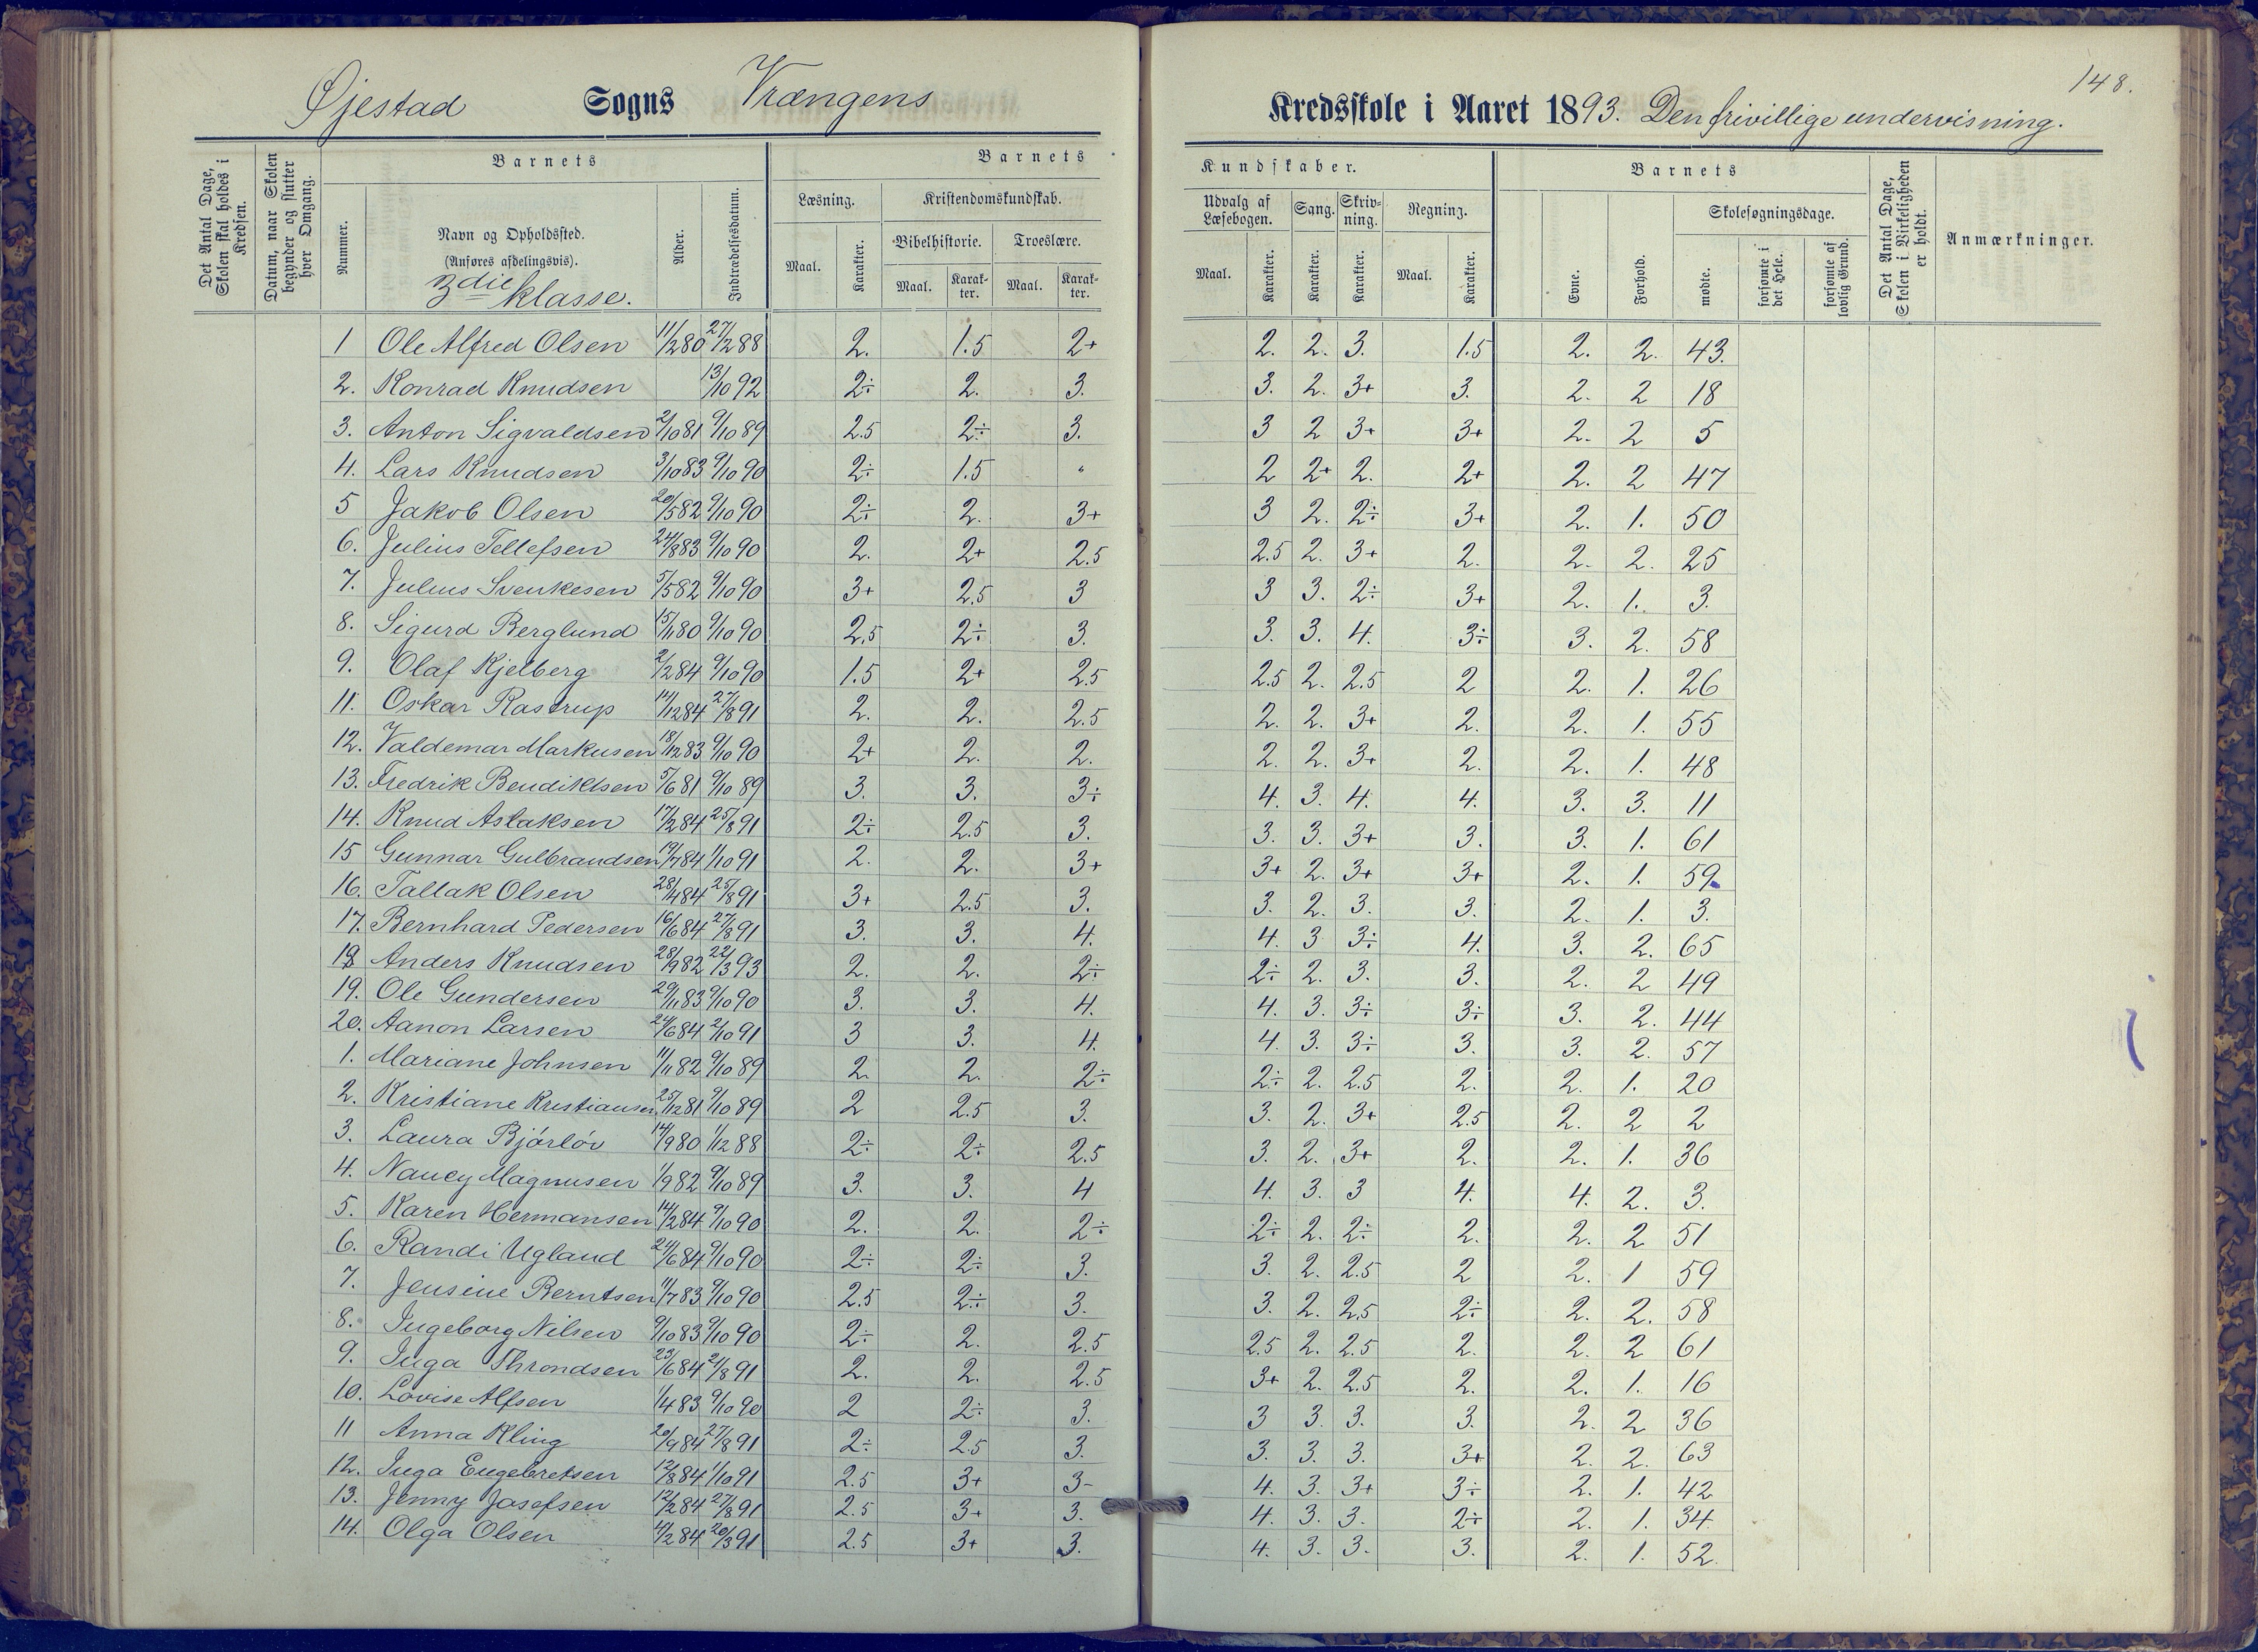 148.
Øjestad Sogns Vrængens Kredsskole i Aaret 1893. Den frivillige undervisning.
Det Antal Dage, Skolen skal holdes i Kredsen.
Datum, naar Skolen begynder og slutter hver Omgang.
Barnets
Nummer.
Navn og Opholdssted.
(Anføres afdelingsvis).
3die klasse.
Alder.
Indtrædelsesdatum.
Barnets Kundskaber.
Læsning.
Maal. Karakter.
Kristendomskundskab.
Bibelhistorie. Troeslære.
Maal. Karakter. Maal. Karakter.
Udvalg af Læsebogen. Sang. Skrivning. Regning.
Maal. Karakter. Karakter. Karakter. Maal. Karakter.
Barnets
Evne. Forhold.
Skolesøgningsdage.
mødte. forsømte i det Hele. forsømte af lovlig Grund.
Det Antal Dage, Skolen i Virkeligheden er holdt.
Anmærkninger.
1 Ole Alfred Olsen 11/2 80 27/2 88 2. 1.5 2+ 2. 2. 3. 1.5 2. 2. 43.
2. Konrad Knudsen 13/10 92 2÷ 2. 3. 3. 2. 3+ 3. 2. 2 18
3. Anton Sigvaldsen 2/10 81 9/10 89 2.5 2÷ 3. 3 2 3+ 3+ 2. 2 5
4. Lars Knudsen 3/10 83 9/10 90 2÷ 1.5 " 2 2+ 2. 2+ 2. 2 47
5 Jakob Olsen 20/5 82 9/10 90 2÷ 2. 3+ 3 2. 2÷ 3+ 2. 1. 50
6. Julius Tellefsen 24/8 83 9/10 90 2. 2+ 2.5 2.5 2. 3+ 2. 2. 2. 25
7. Julius Svenkesen 5/5 82 9/10 90 3+ 2.5 3 3 3. 2÷ 3+ 2. 1. 3.
8. Sigurd Berglund 15/11 80 9/10 90 2.5 2÷ 3. 3. 3. 4. 3÷ 3. 2. 58
9. Olaf Kjelberg 2/2 84 9/10 90 1.5 2+ 2.5 2.5 2. 2.5 2 2. 1. 26
11. Oskar Rastrup 14/12 84 27/8 91 2. 2. 2.5 2. 2. 3+ 2. 2. 1. 55
12. Valdemar Markusen 18/12 83 9/10 90 2+ 2. 2. 2. 2. 3+ 2. 2. 1. 48
13. Fredrik Bendiktsen 5/6 81 9/10 89 3. 3. 3÷ 4. 3. 4. 4. 3. 3. 11
14. Knud Aslaksen 17/2 84 25/8 91 2÷ 2.5 3. 3. 3. 3+ 3. 3. 1. 61
15 Gunnar Gulbrandsen 19/7 84 1/10 91 2. 2. 3+ 3+ 2. 3+ 3+ 2. 1. 59.
16. Tallak Olsen 28/4 84 25/8 91 3+ 2.5 3. 3. 2. 3. 3. 2. 1. 3.
17. Bernhard Pedersen 16/6 84 27/8 91 3. 3. 4. 4. 3 3÷ 4. 3. 2. 65
18 Anders Knudsen 28/9 82 22/3 93 2. 2. 2÷ 2÷ 2. 3. 3. 2. 2 49
19. Ole Gundersen 29/11 83 9/10 90 3. 3. 4. 4. 3. 3÷ 3÷ 3. 2. 44
20. Aanon Larsen 24/6 84 2/10 91 3 3. 4. 4. 3. 3÷ 3. 3. 2. 57
1. Mariane Johnsen 11/11 82 9/10 89 2. 2. 2÷ 2÷ 2. 2.5 2. 2. 1. 20
2. Kristiane Kristiansen 25/12 81 9/10 89 2 2.5 3. 3. 2. 3+ 2.5 2. 2 2
3. Laura Bjørløv 14/9 80 1/12 88 2÷ 2÷ 2.5 3. 2. 3+ 2. 2. 1. 36
4. Nancy Magnusen 1/9 82 9/10 89 3. 3. 4 4. 3. 3 4. 4. 2. 3.
5. Karen Hermansen 14/2 84 9/10 90 2. 2. 2÷ 2÷ 2. 2÷ 2. 2. 2 51
6. Randi Ugland 24/6 84 9/10 90 2÷ 2÷ 3. 3. 2. 2.5 2 2. 1 59
7. Jensine Berntsen 11/7 83 9/10 90 2.5 2÷ 3. 3. 2. 2.5 2÷ 2. 2. 58
8. Ingeborg Nilsen 9/10 83 9/10 90 2÷ 2. 2.5 2.5 2. 2.5 2. 2. 2 61
9. Inga Throndsen 23/6 84 24/8 91 2. 2. 2.5 3+ 2. 2.5 2. 2. 1. 16
10. Lovise Alfsen 1/4 83 9/10 90 2 2÷ 3. 3 3. 3. 3. 2. 2 36
11 Anna Kling 20/9 84 27/8 91 2÷ 2.5 3. 3. 3. 3. 3+ 2. 2. 63
12. Inga Engebretsen 12/8 84 1/10 91 2.5 3+ 3- 4. 3. 3+ 3÷ 2. 1. 42
13. Jenny Josefsen 12/2 84 27/8 91 2.5 3+ 3. 4. 3. 3. 2÷ 2. 1. 34
14. Olga Olsen 4/2 84 20/3 91 2.5 3+ 3. 4. 3. 3. 3. 2. 1. 52.